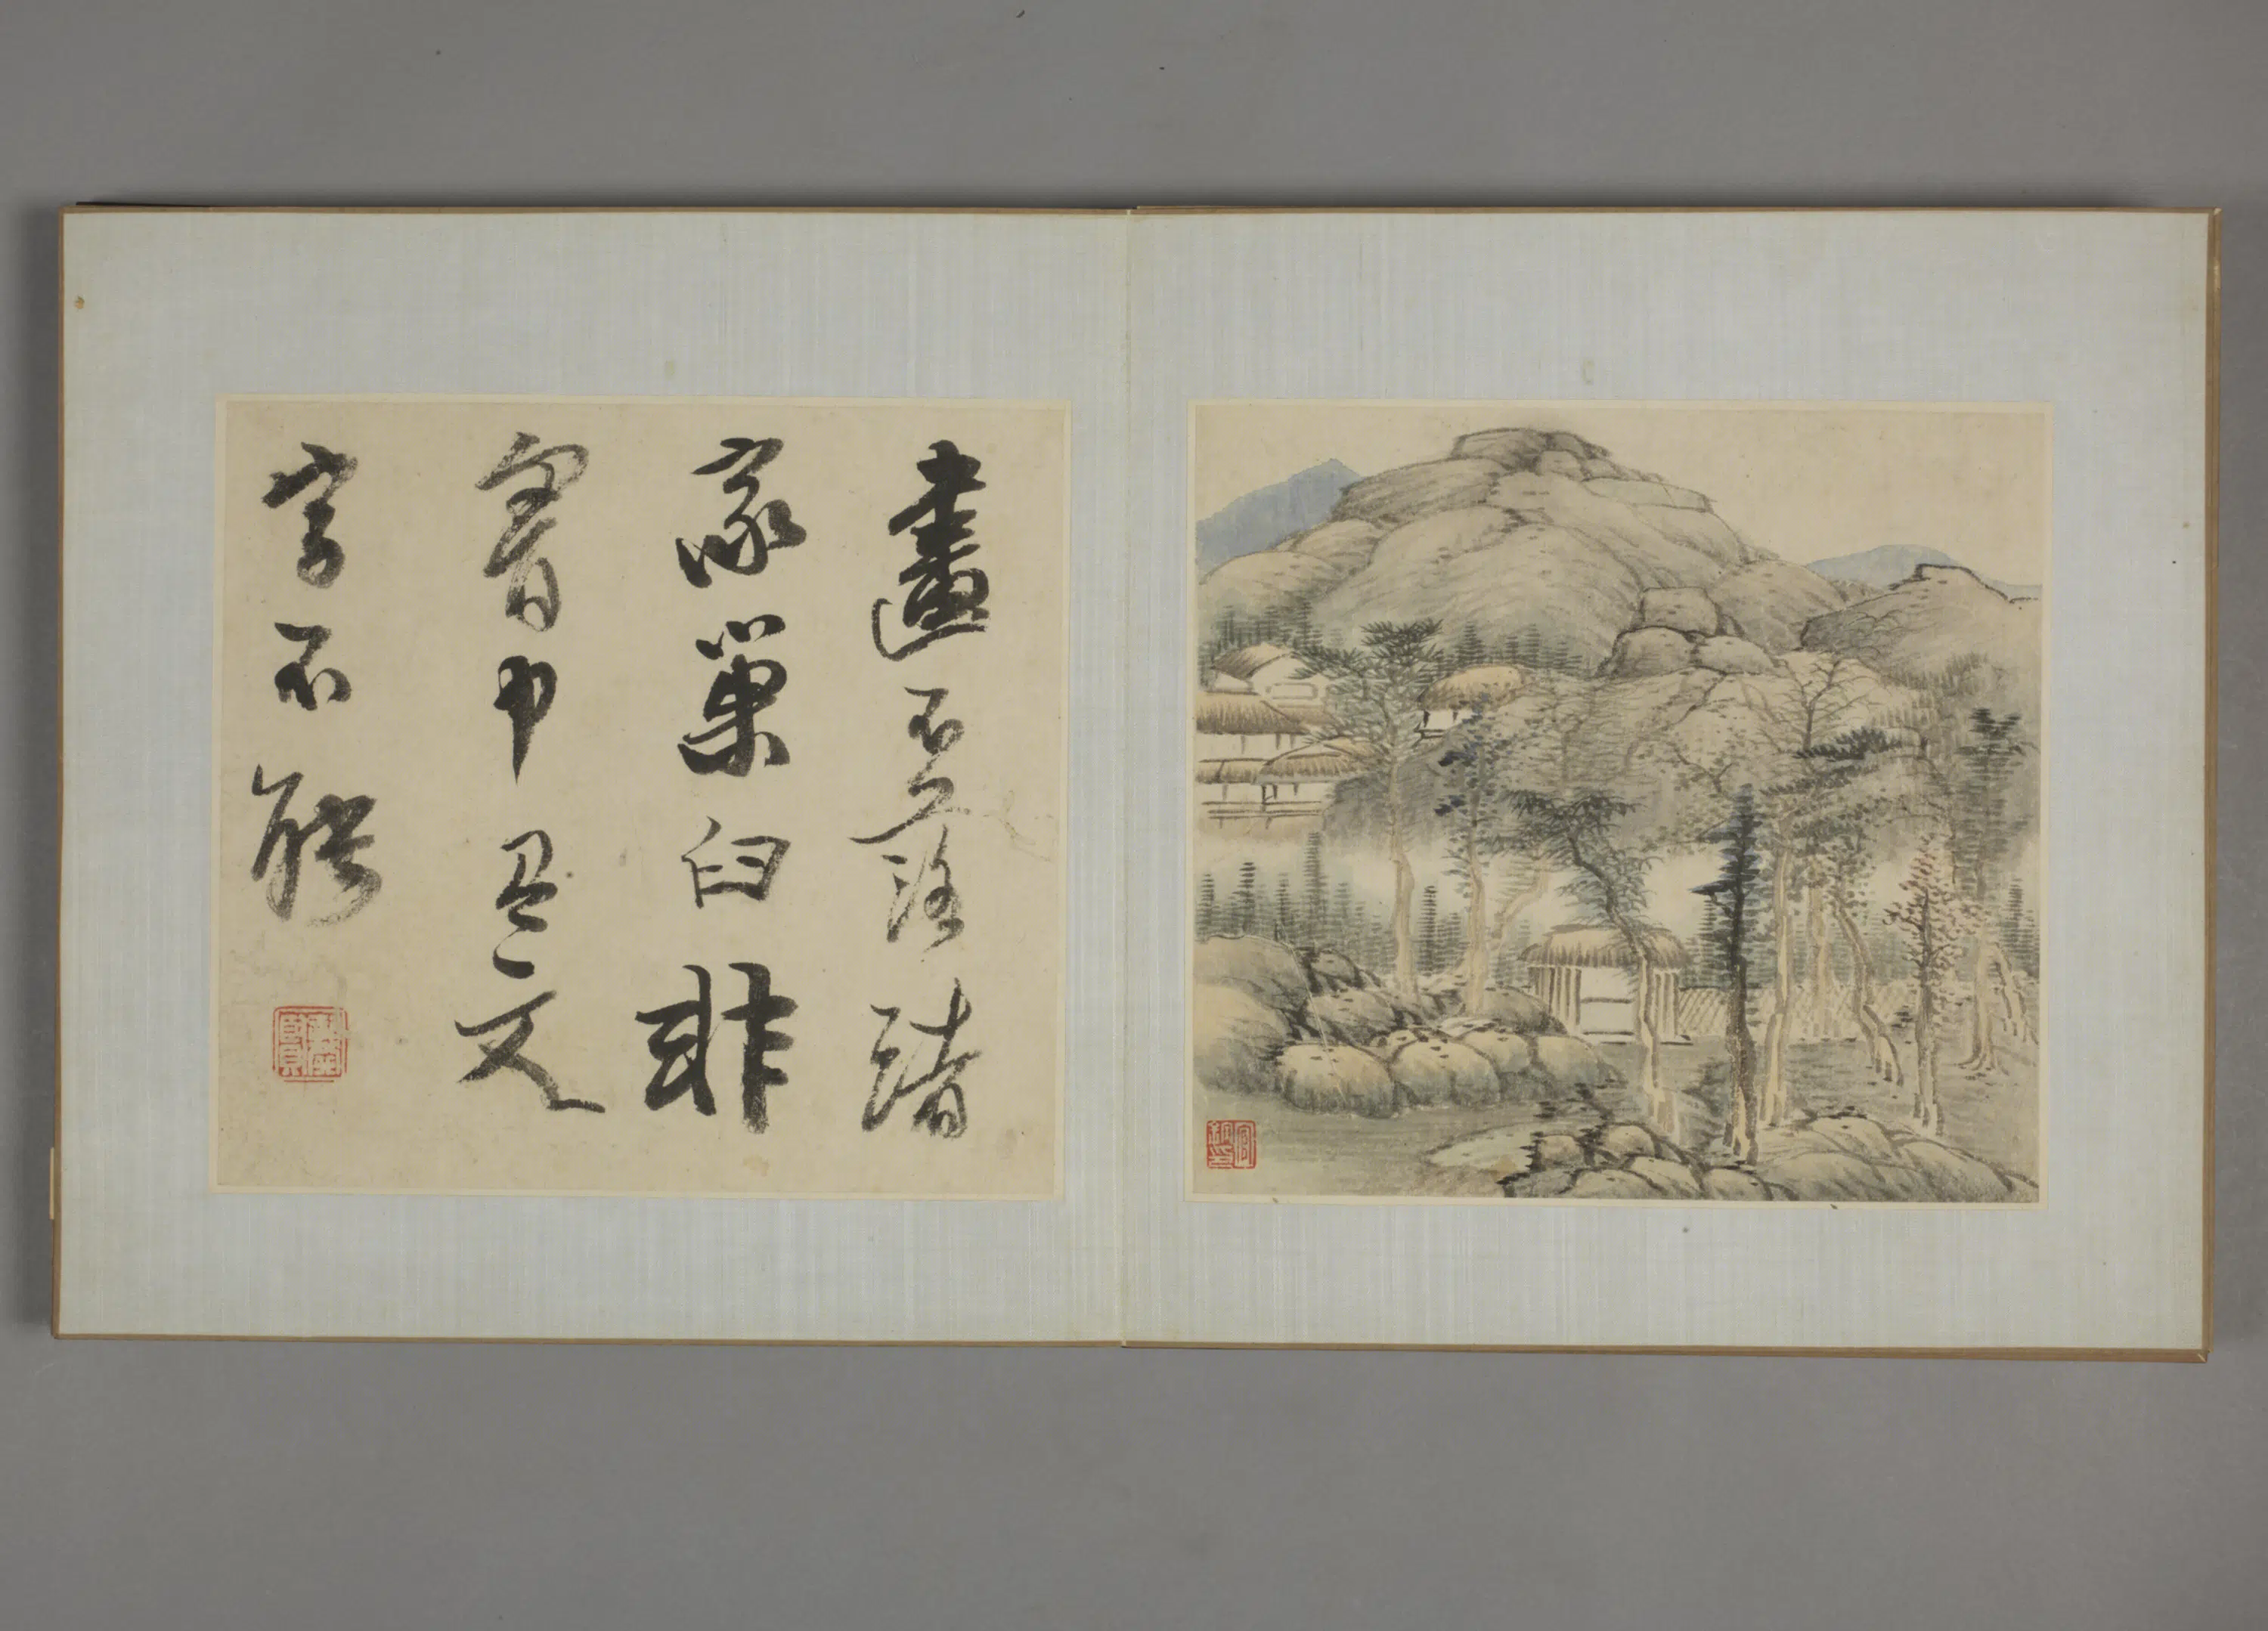 畫不落諸
家巢臼非
胷中文
字不能